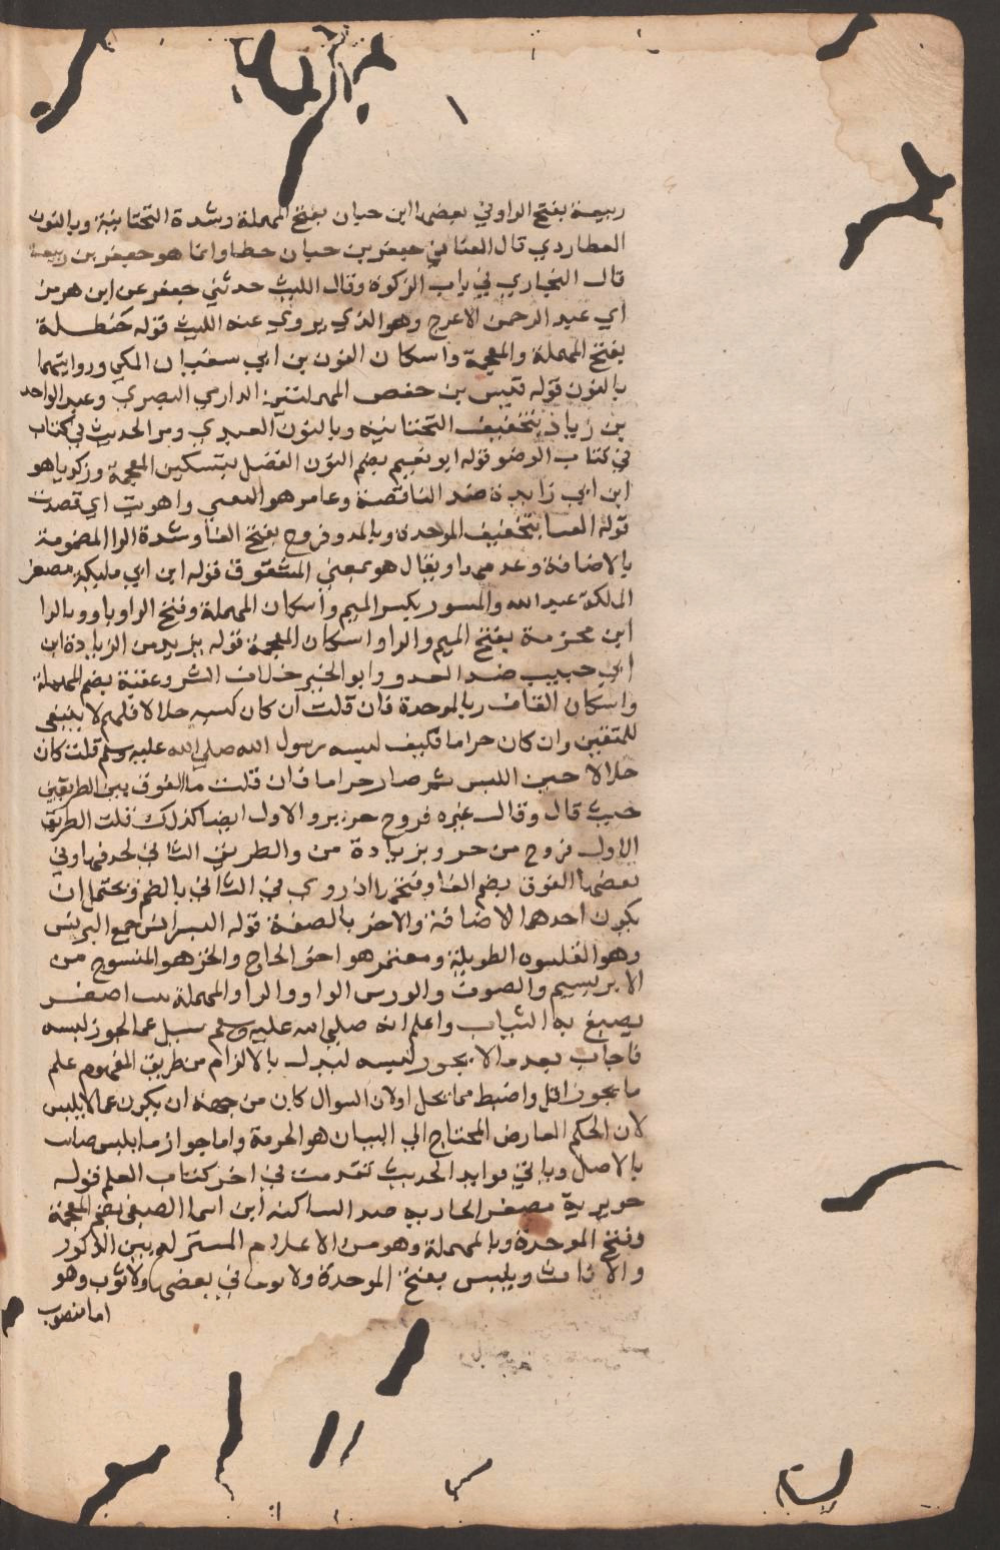 ربيعة بفتح الراوفي بعضها ابن حيان بفتح المهملة وشدة التحتانية وبالنون
العطاردي قال الغساني جعفر بن حيان خطا وانما هو جعفر بن ربيعة
قال البخاري في باب الزكوة وقال الليث حدثني جعفر عن ابن هرمز
اي عبد الرحمن الاعرج وهو الذي يروي عنه الليث قوله حنظلة
بفتح المهملة والمعجمة واسكان النون بن ابي سفيان المكي وروايتهما
بالنون قوله قيس بن حفص المهملتين الدارمي البصري وعبد الواحد
بن زياد بتخفيف التحتانيه وبالنون العبدي ومر الحديث في كتاب
في كتاب الوضو قوله ابو نعيم بضم النون الفضل بتسكين المعجمة وزكريا هو
ابن ابي زايدة ضد الناقصة وعامر هو الشعبي واهويت اي قصدت
قوله القبا بتخفيف الموحدة وبالمد وفروج بفتح الفا وشدة الرا المضمومة
بالاضافة وعدمها ويقال هو بمعني المشقوق قوله ابن ابي مليكة مصغر
الملكة عبد الله والمسور بكسر الميم واسكان المهملة وفتح الواو وبالرا
ابن مخرمة بفتح الميم والرا واسكان المعجمة قوله يزيد من الزيادة ابن
ابي حبيب ضد العدو وابو الخير خلاف الشر وعقبة بضم المهملة
واسكان القاف وبالموحدة فان قلت ان كان لبسه حلالا فلم لا ينبغي
للمتقين وان كان حراما فكيف لبسه رسول الله صلي الله عليه وسلم قلت كان
حلالا حين اللبس ثم صار حراما فان قلت ما الفرق بين الطريقين
حيث قال وقال غيره فروج حرير والاول ايضا كذلك قلت الطريق
الاول فروج من حرير بزيادة من والطريق الثاني بحذفها وفي
بعضها الفرق بضم الفا وفتحها اذ روي في الثاني بالضم ويحتمل ان
يكون احدهما الاضافة والاخر بالصفة قوله البرانس جمع البرنس
وهو القلنسوه الطويلة ومعتمر هو اخو الحاج والخز هو المنسوج من
الابريسم والصوف والورس الواو والرا والمهملة نبت اصفر
يصبغ به الثياب واعلم انه صلي الله عليه وسلم سيل عما يجوز لبسه
فاجاب بعد ما لا يجوز لبسه ليدل بالالزام من طريق المفهوم علم
ما يجوز اقل واضبط مما يحل اولان السوال كان من جهة ان يكون عما لا يلبس
لان الحكم العارض المحتاج الي البيان هو الحرمة واما جواز ما يلبس ثابت
بالاصل وباقي فوايد الحديث تقدمت في اخر كتاب العلم قوله
جويرية مصغر الجارية ضد الساكنه ابن اسما الضبعي بضم المعجمة
وفتح الموحدة وبالمهملة وهو من الاعلام المشتركة بين الذكور
والاناث ويلبس بفتح الموحدة ولا ثوبا في بعضها ولا ثوب وهو
اما منصوب